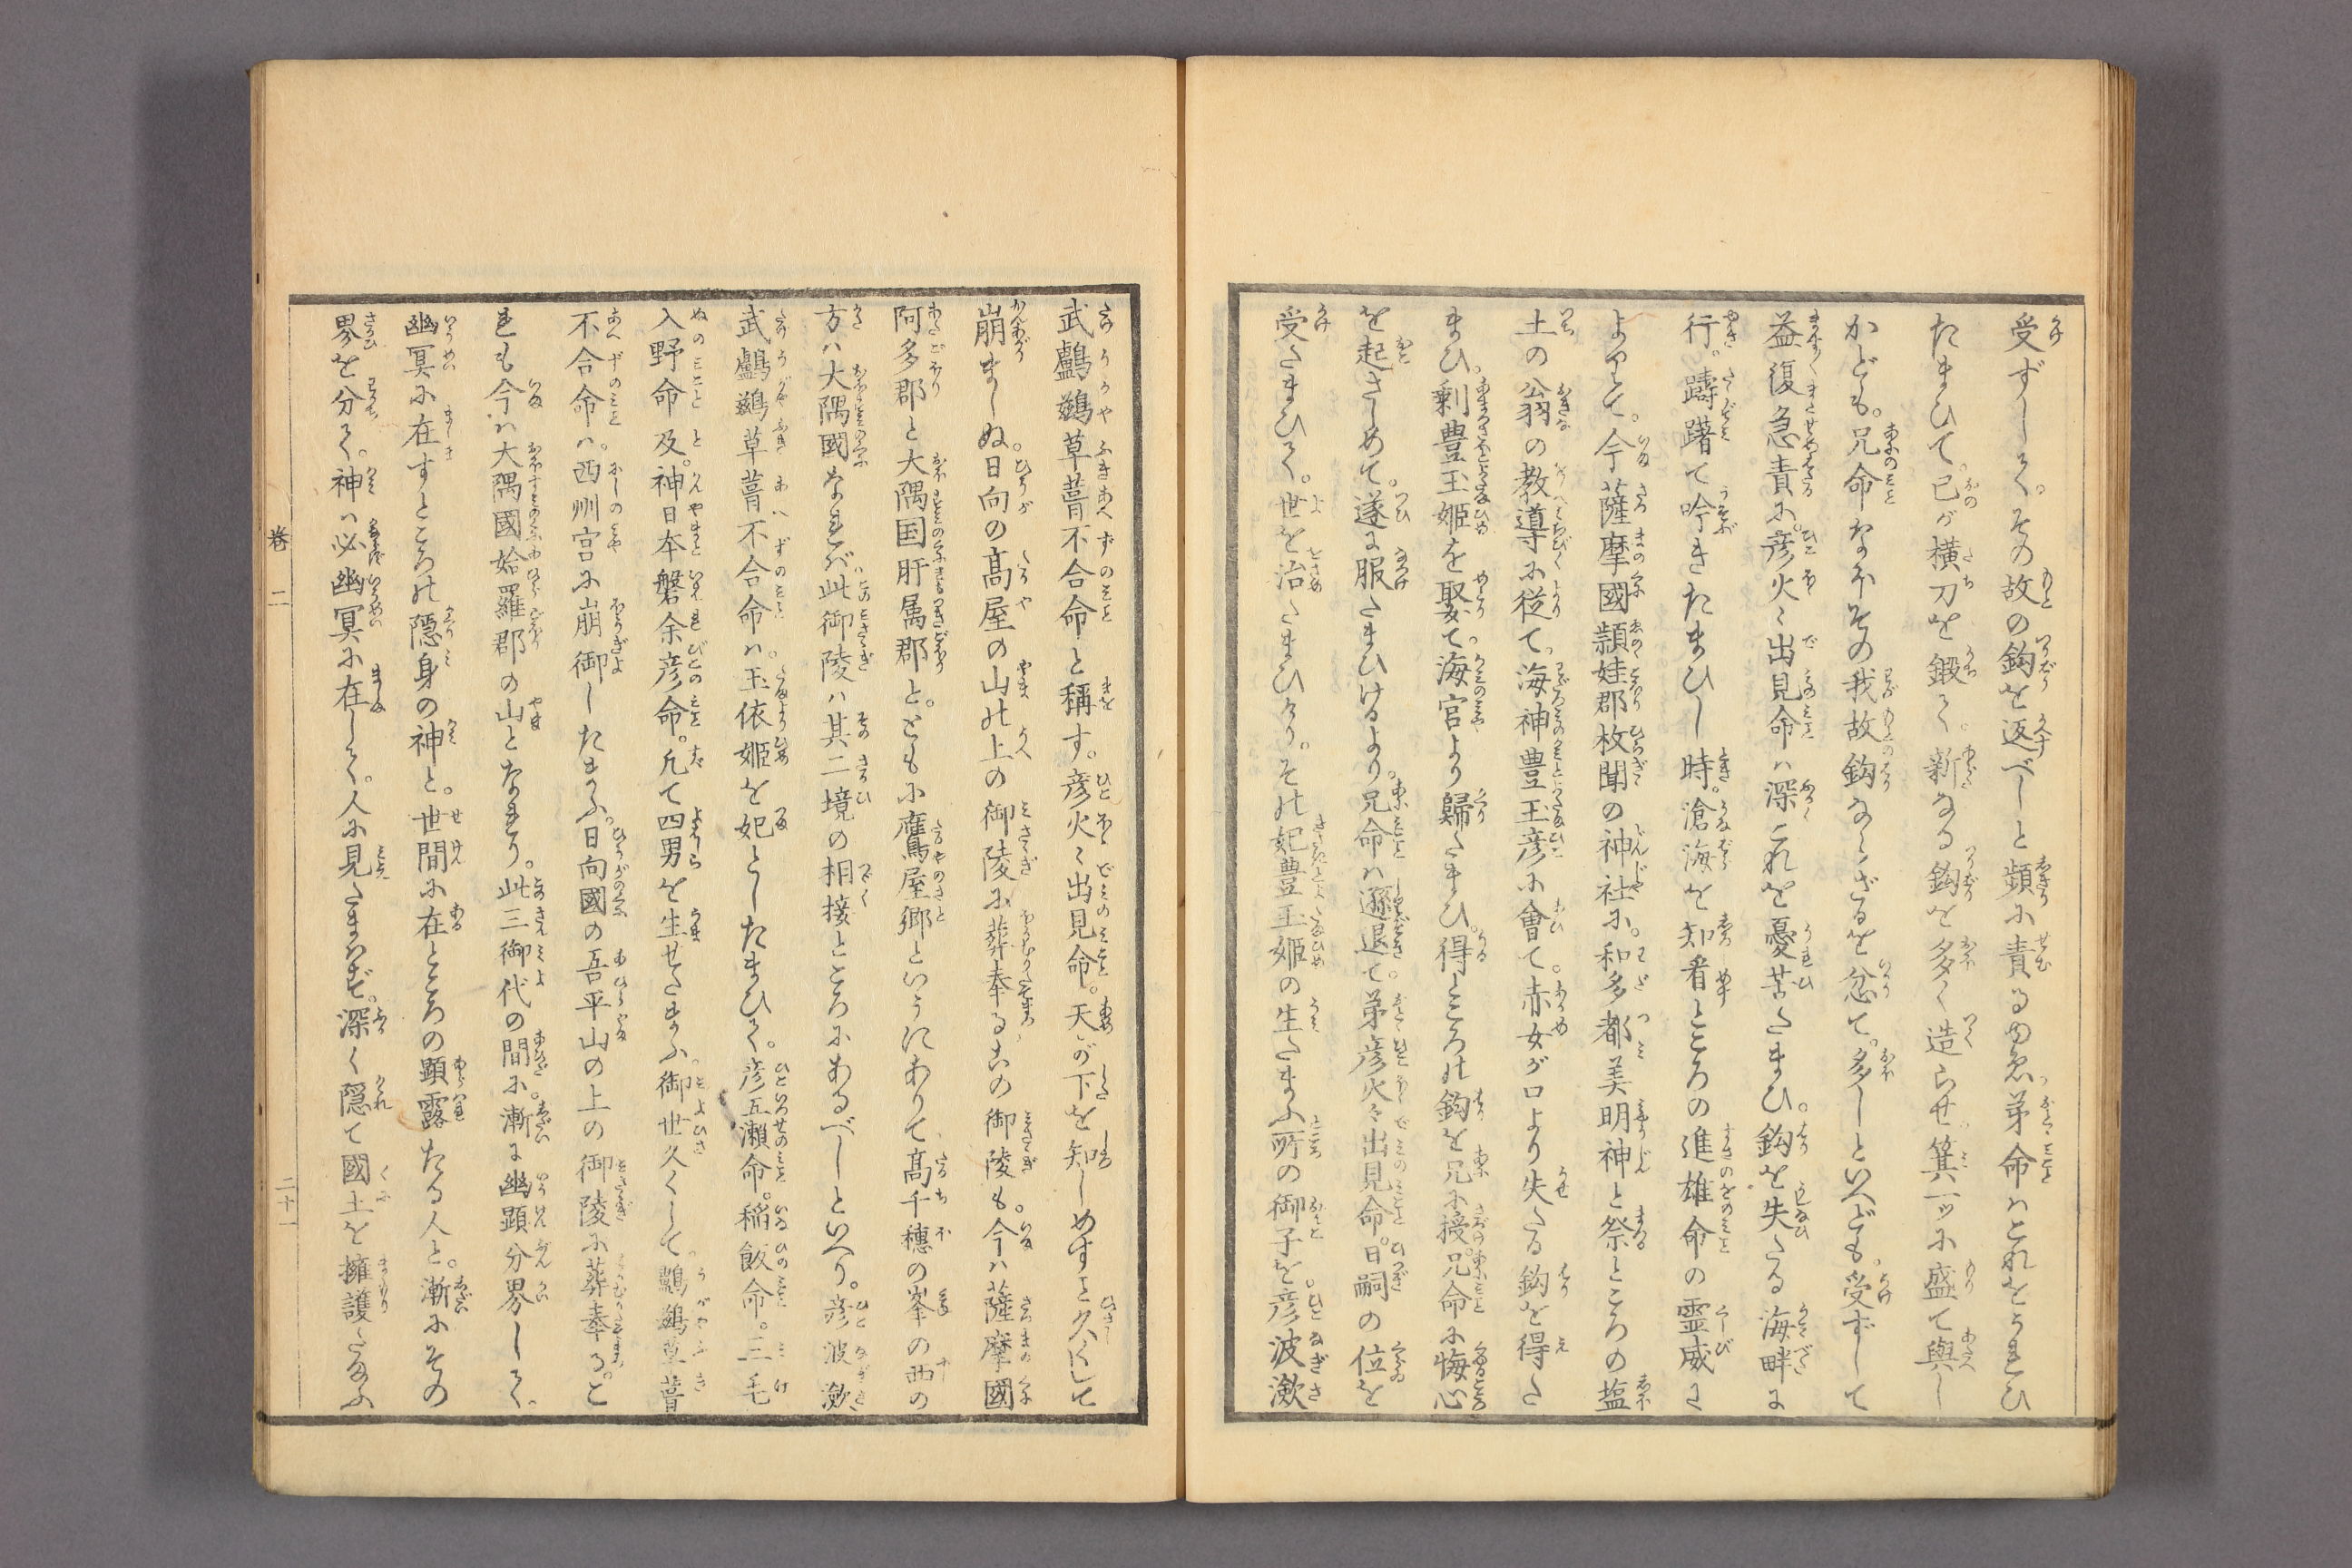 受ずして。その故の鈎を返すべしと頻に責るゆゑ弟命はこれをうれひ
たまひて。已が横刀を鍛て。新なる鈎を多く造らせ箕一ッに盛て與し
かども。兄命なほその我故鈎ならざるを忿て。多しといへども。受ずして
益復急責に。彦火々出見命は深これを憂苦たまひ。鈎を失たる海畔に
行。躊躇て吟きたまひし時。滄海を知看ところの進雄命の霊威に
よりて。今薩摩國頴娃郡枚聞の神社に。和多都美明神と祭ところの塩
土の翁の教導に従て。海神豊玉彦に會て。赤女が口より失たる鈎を得た
まひ。剰豊玉姫を娶て。海宮より歸たまひ。得ところの鈎を兄に授。兄命に悔心
を起さしめて。遂に服たまひけるより。兄命は遜退て。弟彦火々出見命。日嗣の位を
受たまひて。世を治たまひけり。その妃豊玉姫の生たまふ所の御子を。彦波瀲
武鸕鷀草葺不合命と稱す。彦火々出見命。天が下を知しめすこと久くして
崩ましぬ。日向の高屋の山の上の御陵に葬奉るこの御陵も。今は薩摩國
阿多郡と大隅国肝属郡と。ともに鷹屋郷といふにありて、高千穂の峯の西の
方は大隅國なれば、此御陵は其二境の相接ところにあるべしといへり。彦波瀲
武鸕鷀草葺不合命は。玉依姫を妃としたまひて。彦五瀬命。稲飯命。三毛
入野命及。神日本磐余彦命。凡て四男を生せたまふ。御世久くして。鸕鷀草葺
不合命は。西州宮に崩御したまふ。日向國の吾平山の上の御陵に葬奉る。こ
れも今は大隅國姶羅郡の山となれり。此三御代の間に。漸に幽顕分界して。
幽冥に在すところの隠身の神と。世間に在ところの顕露たる人と。漸にその
界を分て。神は必幽冥に在して。人に見たまはず。深く隠て國土を擁護たまふ
巻二
二十一